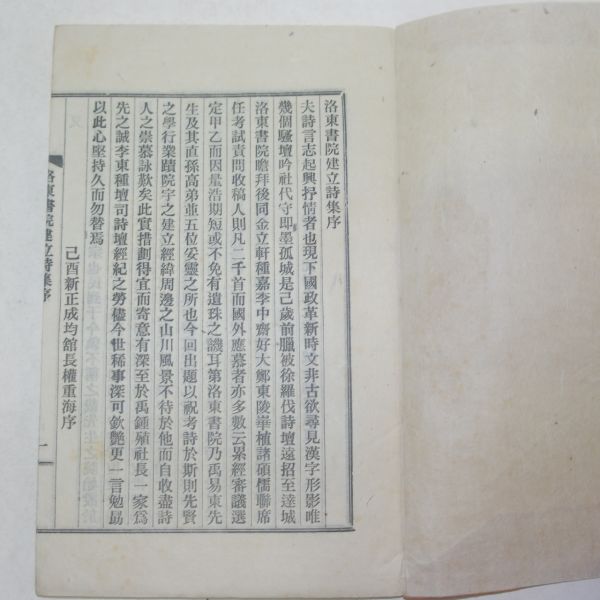 洛東書院建立詩集序
夫詩言志起興抒情者也現下國政革新時文非古欲尋見漢字形影唯
幾個騷壇吟社代守即墨孤城是己歲前臘被徐羅伐詩壇遠招至達城
洛東書院瞻拜後同金立軒種嘉李中齋好大鄭東陵崋植諸碩儒聯席
任考試責問收稿人則凡二千首而國外應慕者亦多數云累經審議選
定甲乙而因量浩期短或不免有遺珠之譏耳第洛東書院乃禹易東先
生及其直孫高弟並五位妥靈之所也今回出題以祝考詩於斯則先賢
之學行業蹟院宇之建立經緯周邊之山川風景不待於他而自收盡詩
人之崇慕詠歎矣此實措劃得宜而寄意有深至於禹鍾殖社長一家爲
先之誠李東種壇司詩壇經紀之勞儘今世稀事深可欽艷更一言勉勗
以此心堅持久而勿替焉
己酉新正成均館長權重海序
洛東書院建立詩集序
一